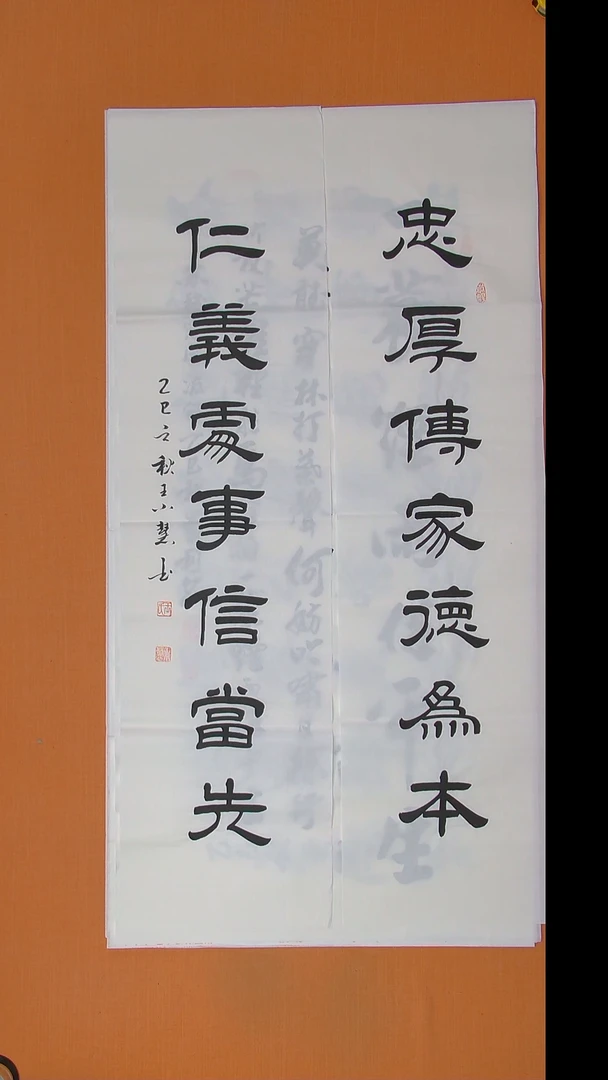 忠厚傳家德為本
仁義處事信當先
乙巳立秋王小慧书